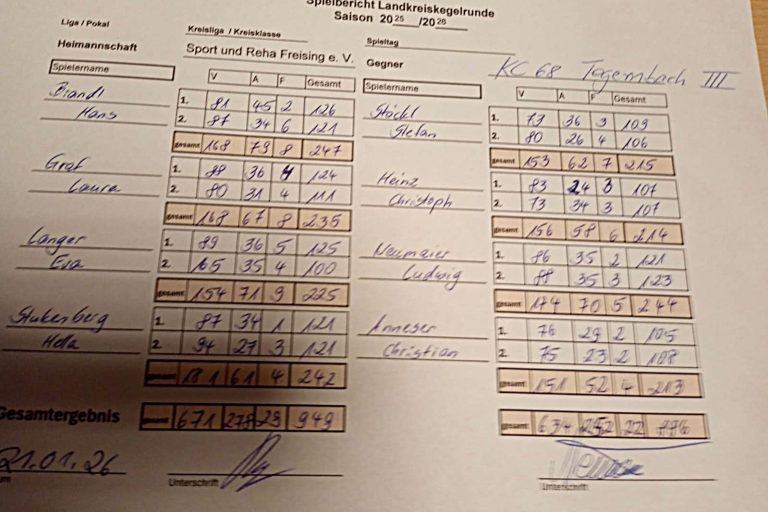 Spielbericht Landkreiskegelrunde
Saison 20 25 /20 26
Liga / Pokal Kreisliga / Kreisklasse Spieltag
Heimannschaft Sport und Reha Freising e. V. Gegner KC 68 Tegernbach III
Spielername V A F Gesamt Spielername V A F Gesamt
Brandl 1. 81 45 2 126 Stöckl 1. 73 36 3 109
Hans 2. 87 34 6 121 Stefan 2. 80 26 4 106
gesamt 168 79 8 247 gesamt 153 62 7 215
Graf 1. 88 36 4 124 Heinz 1. 83 24 3 107
Laura 2. 80 31 4 111 Christoph 2. 73 34 3 107
gesamt 168 67 8 235 gesamt 156 58 6 214
Langer 1. 89 36 5 125 Neumaier 1. 86 35 2 121
Eva 2. 65 35 4 100 Ludwig 2. 88 35 3 123
gesamt 154 71 9 225 gesamt 174 70 5 244
1. 87 34 1 121 Anneser 1. 76 29 2 105
Hella 2. 94 27 3 121 Christian 2. 75 23 2 108
gesamt 181 61 4 242 gesamt 151 52 4 213
Gesamtergebnis gesamt 671 278 29 949 gesamt 634 252 22 886
21.01.26
Unterschrift Unterschrift